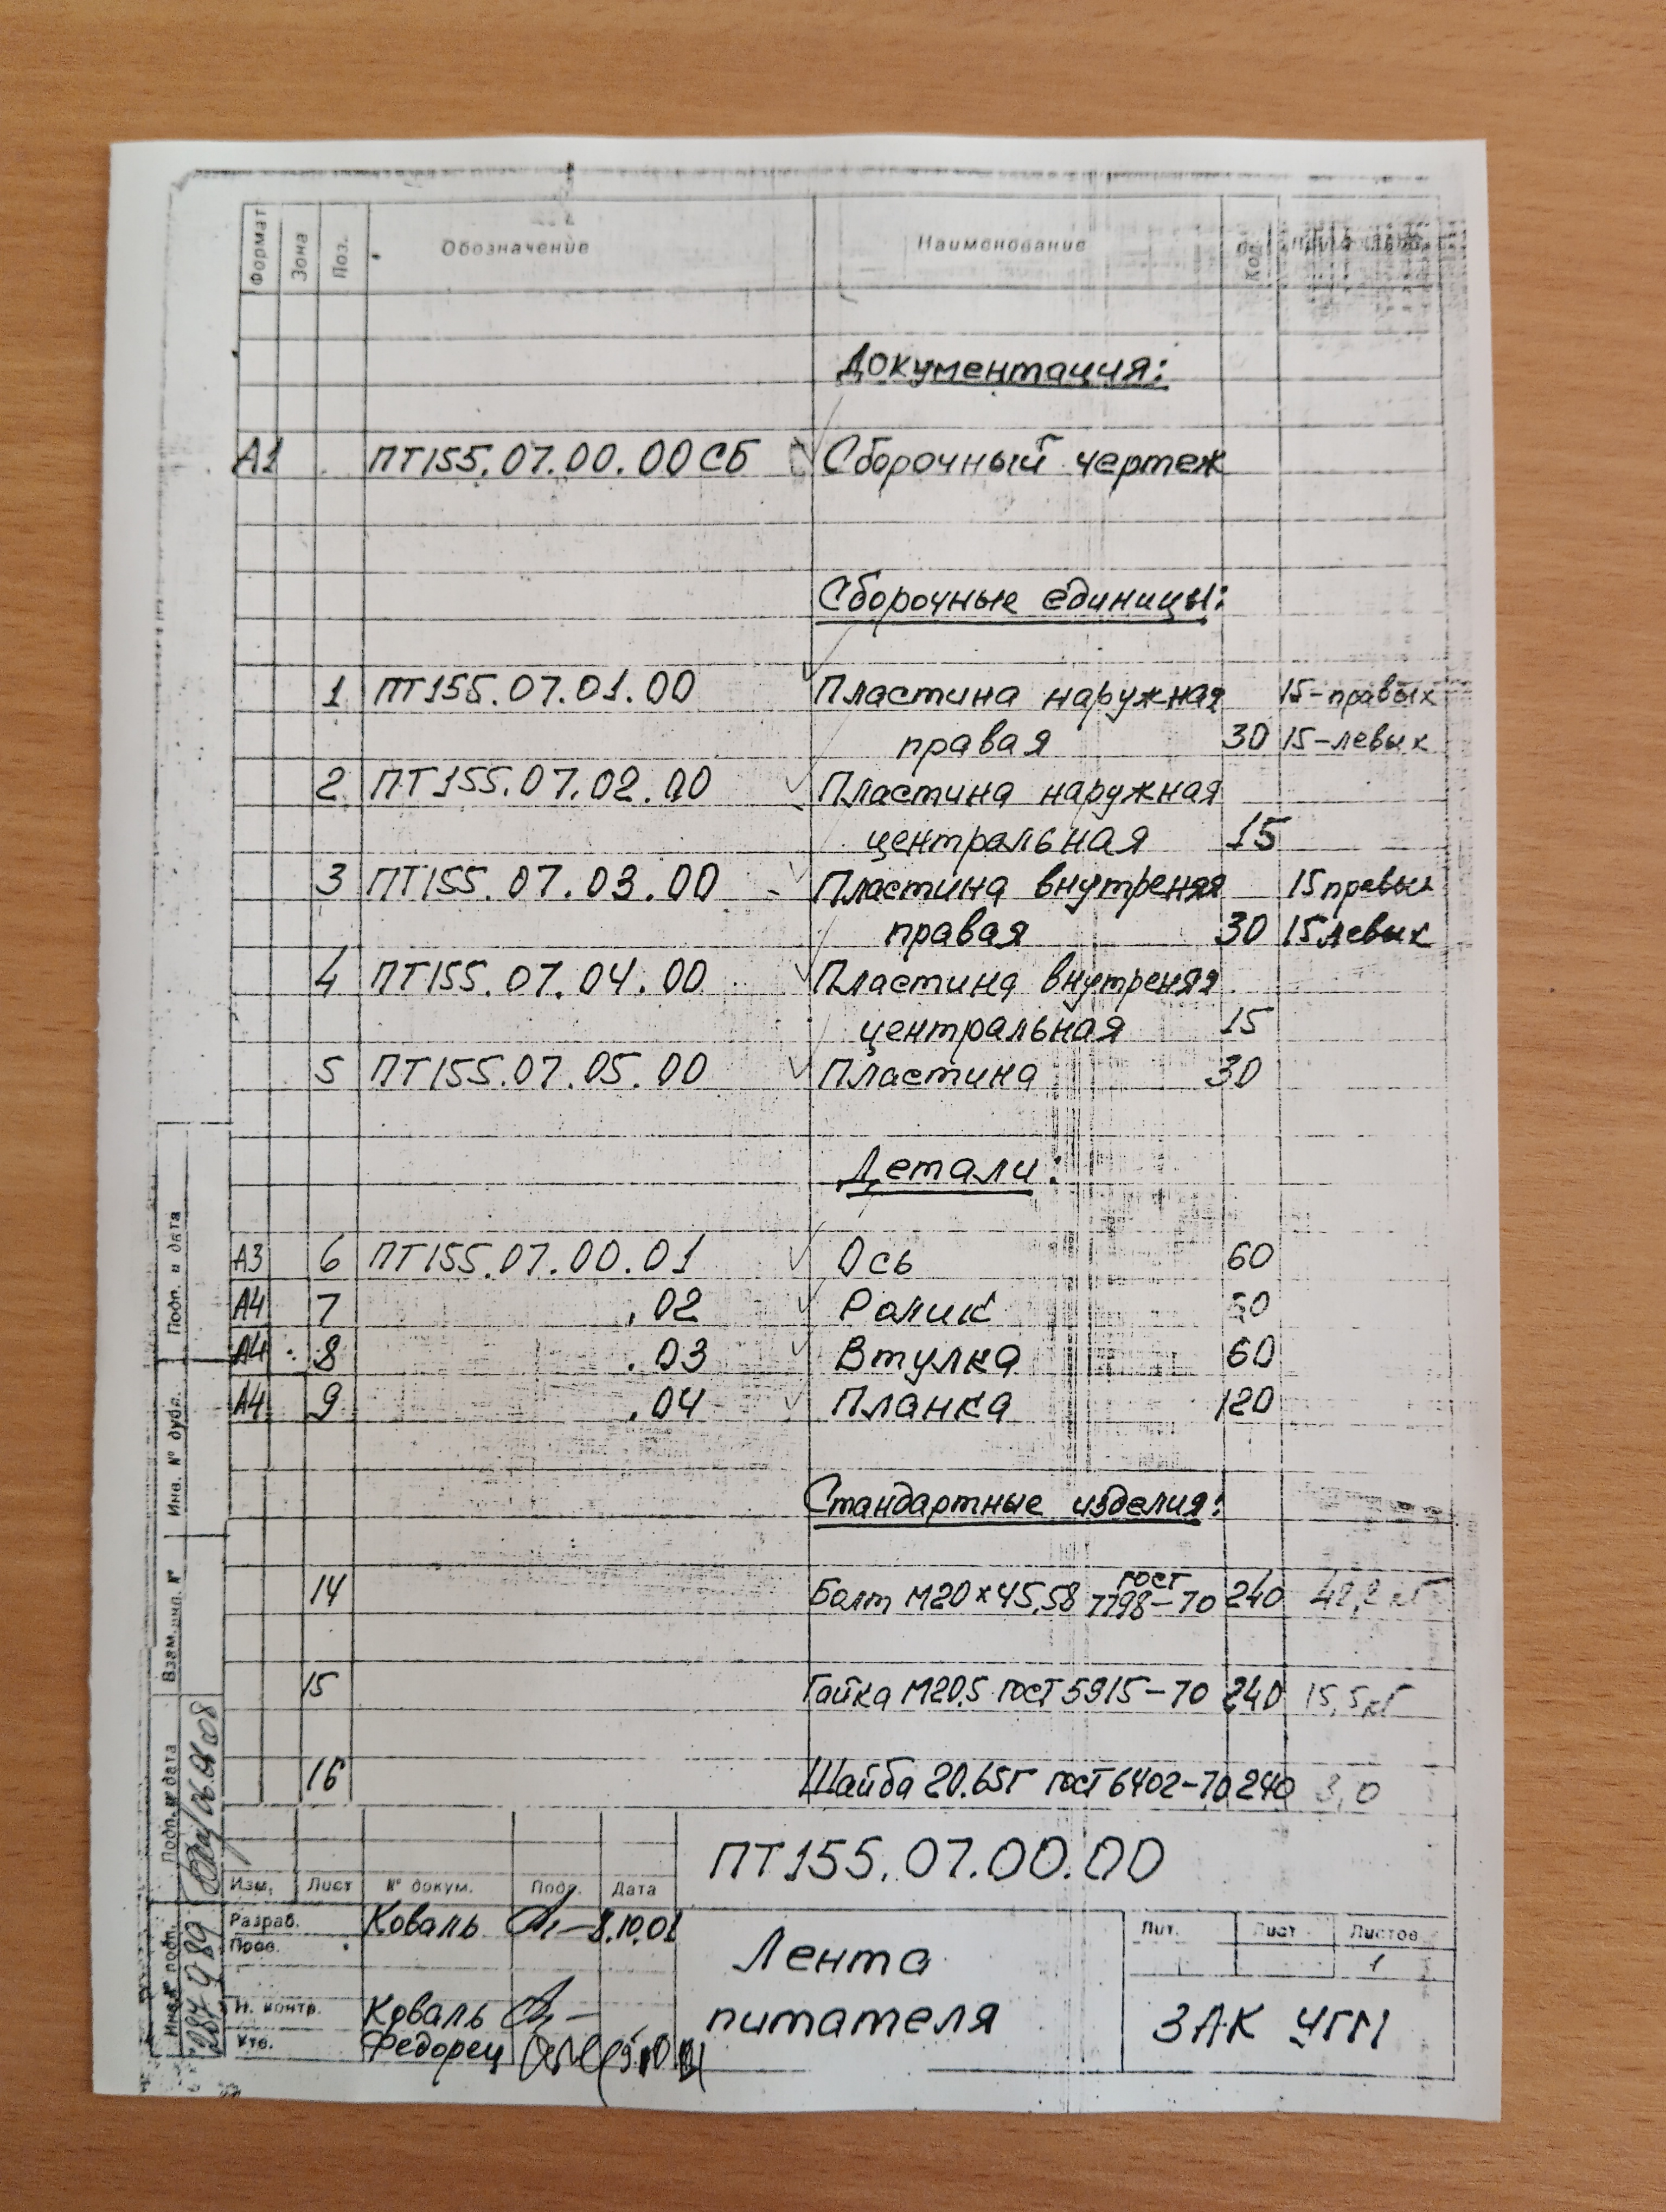 Формат Зона Поз. Обозначение Наименование Кол
Документация:
А1 ПТ155.07.00.00СБ Сборочный чертеж
Сборочные единицы:
1 ПТ155.07.01.00 Пластина наружная 15-правых
правая 30 15-левых
2 ПТ155.07.02.00 Пластина наружная
центральная 15
3 ПТ155.07.03.00 Пластина внутреняя 15 правых
правая 30 15 левых
4 ПТ155.07.04.00 Пластина внутреняя
центральная 15
5 ПТ155.07.05.00 Пластина 30
Детали:
А3 6 ПТ155.07.00.01 Ось 60
А4 7 .02 Ролик
А4 8 .03 Втулка 60
А4 9 .04 Планка 120
Стандартные изделия:
14 Болт М20×45.58 ГОСТ 7798-70 240
15 Гайка М20.5 ГОСТ 5915-70 240 15,5кг
16 Шайба 20.65Г ГОСТ 6402-70 240 3,0
ПТ155.07.00.00
Изм. Лист № докум. Подп. Дата
Разраб. Коваль 8.10.01
Пров.
Н. контр. Коваль
Утв. Федорец
Лента
питателя
Лит. Лист Листов
1
ЗАК УГМ
Подп. и дата
Инв. № дубл.
Взам. инв. №
Подп. и дата
Инв. № подл.